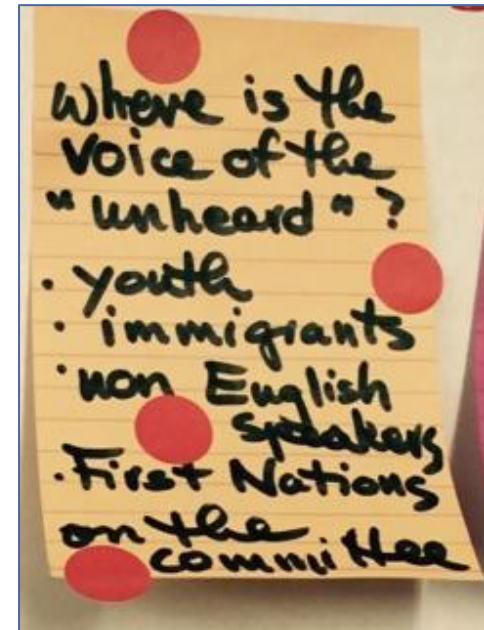 where is the
voice of the
"unheard"?
• youth
• immigrants
• non English
speakers
• First Nations
on the
committee